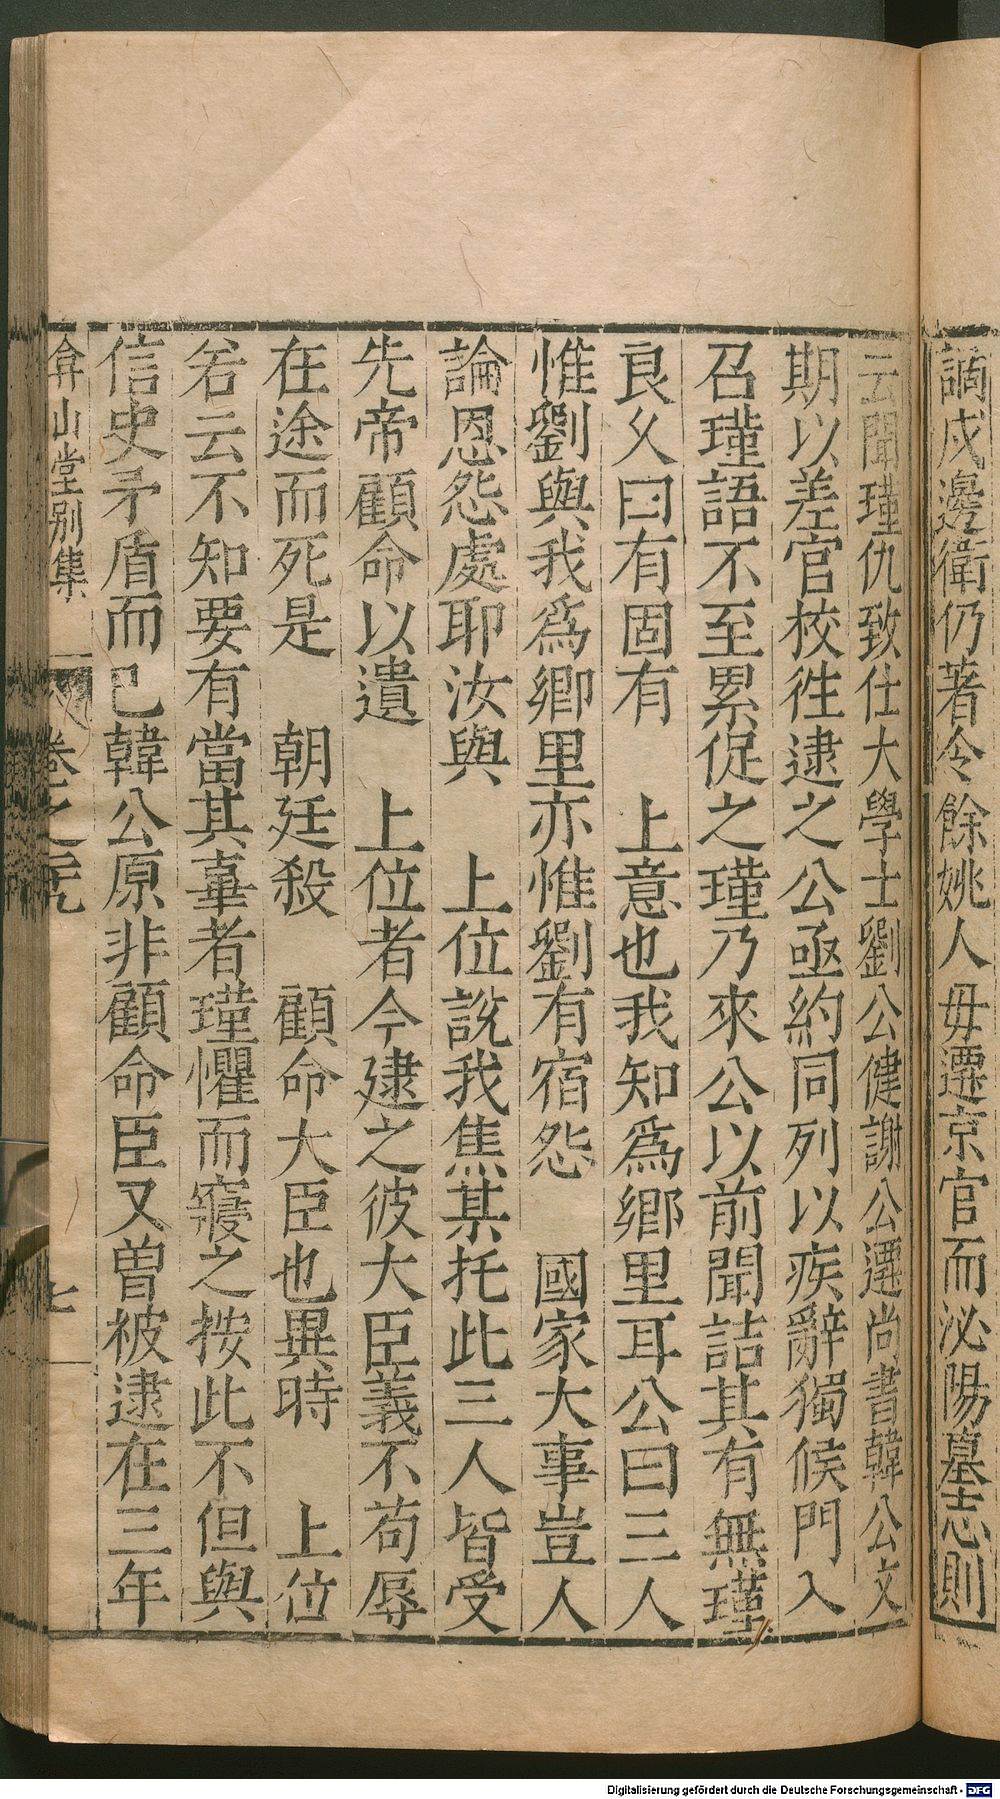 謫戍邊衛仍著令餘姚人毋遷京官而泌陽墓志則
云聞瑾仇致仕大學士劉公健謝公遷尚書韓公文
期以差官校徃逮之公亟約同列以疾辭獨候門入
召瑾語不至累促之瑾乃來公以前聞詰其有無瑾
良乆曰有固有　上意也我知爲鄉里耳公曰三人
惟劉與我爲鄉里亦惟劉有宿怨　國家大事豈人
論恩怨處耶汝與　上位說我焦某托此三人皆受
先帝顧命以遺　上位者今逮之彼大臣義不苟辱
在途而死是　朝廷殺　顧命大臣也異時　上位
若云不知要有當其辜者瑾懼而寢之按此不但與
信史矛盾而已韓公原非顧命臣又曾被逮在三年
弇山堂别集
卷之二十九
七
Digitalisierung gefördert durch die Deutsche Forschungsgemeinschaft - DFG